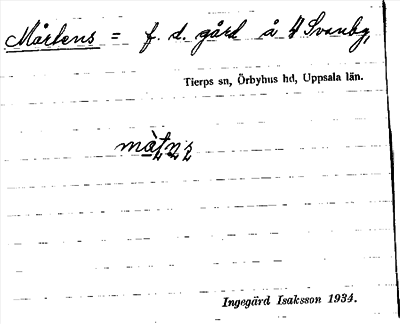 Mårtens = f. d. gård å Svanby,
Tierps sn, Örbyhus hd, Uppsala län.
Ingegärd Isaksson 1934.